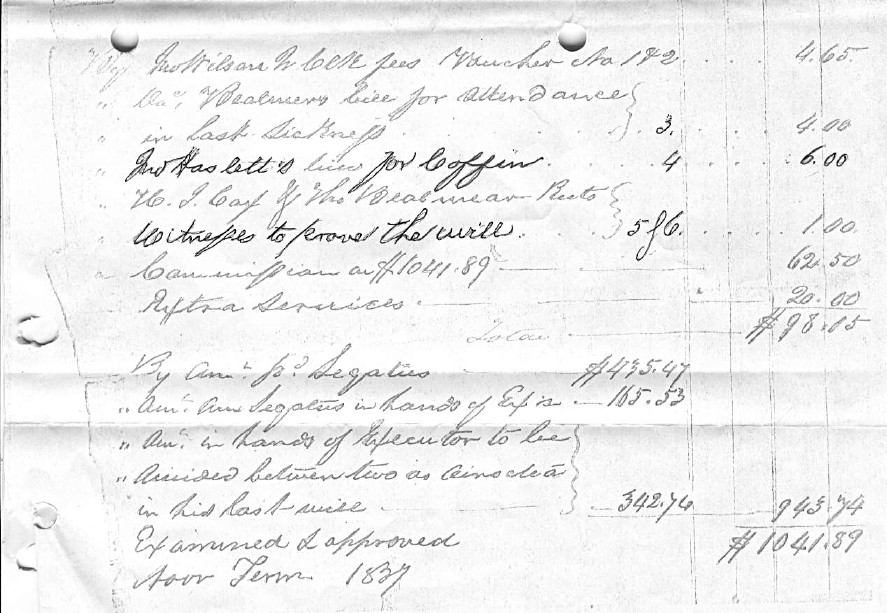 By Jno Wilson Jr Clk fees Voucher No 1 & 2 . . . . 4.65
" Da. Bealmers bill for attendance
" in last sickness . . . . 3. . . . 4.00
" Jno Haslett's bill for Coffin . . . . 4 . . . . 6.00
" H. I. Cay & Tho Bealmear
" Witnesses to prove the will . . . 5 & 6. . . . 1.00
" Commission on $1041.89 62.50
Extra Services 20.00
Total $98.15
By Amt. pd Legatus $435.47
" Amt. due Legatus in hands of Ex's 165.53
" Amt. in hands of Executor to be
" divided between two as directed
in his last will 342.74 943.74
Examined & approved $1041.89
Novr Term 1837